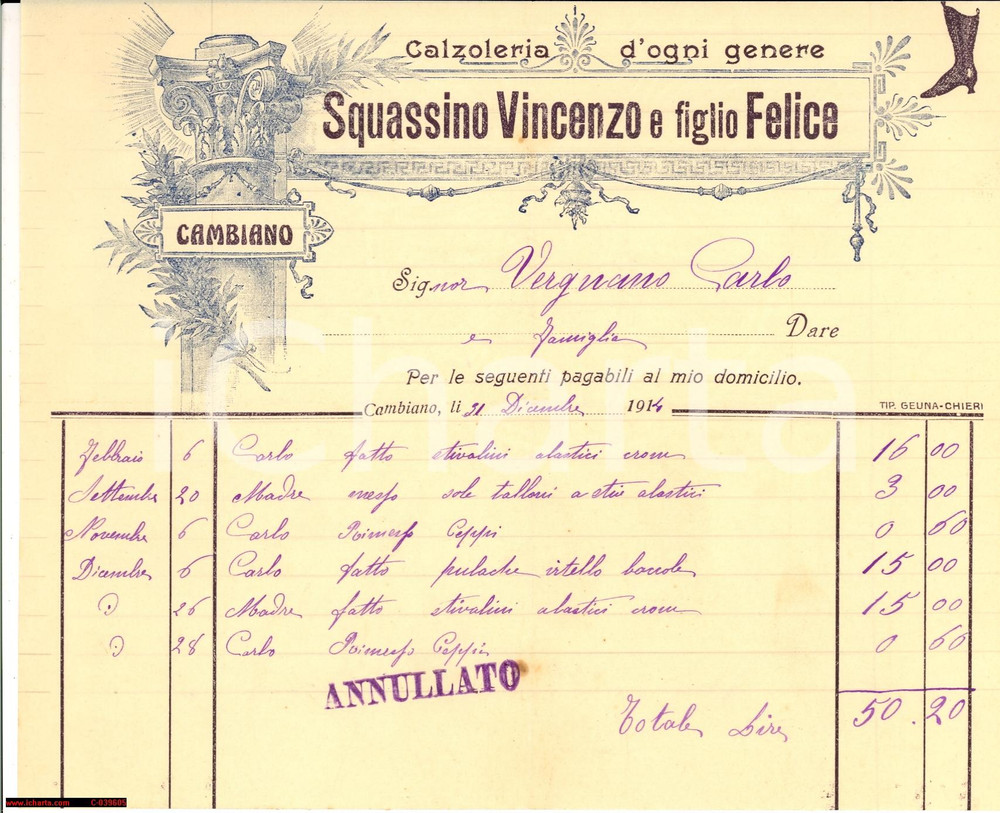 Calzoleria d'ogni genere
Squassino Vincenzo e figlio Felice
CAMBIANO
Signor Vergnano Carlo
e famiglia Dare
Per le seguenti pagabili al mio domicilio.
Cambiano, li 31 Dicembre 1914
TIP. GEUNA-CHIERI
Febbraio 6 Carlo fatto stivalini elastici crom 16 00
Settembre 20 Madre messo sole talloni a stiv elastici 3 00
Novembre 6 Carlo Rimesso Ceppi 0 60
Dicembre 6 Carlo fatto pulache vitello 15 00
" 26 Madre fatto stivalini elastici crom 15 00
" 28 Carlo Rimesso Ceppi 0 60
ANNULLATO
Totale Lire 50.20
iCharta
www.icharta.com C-039605